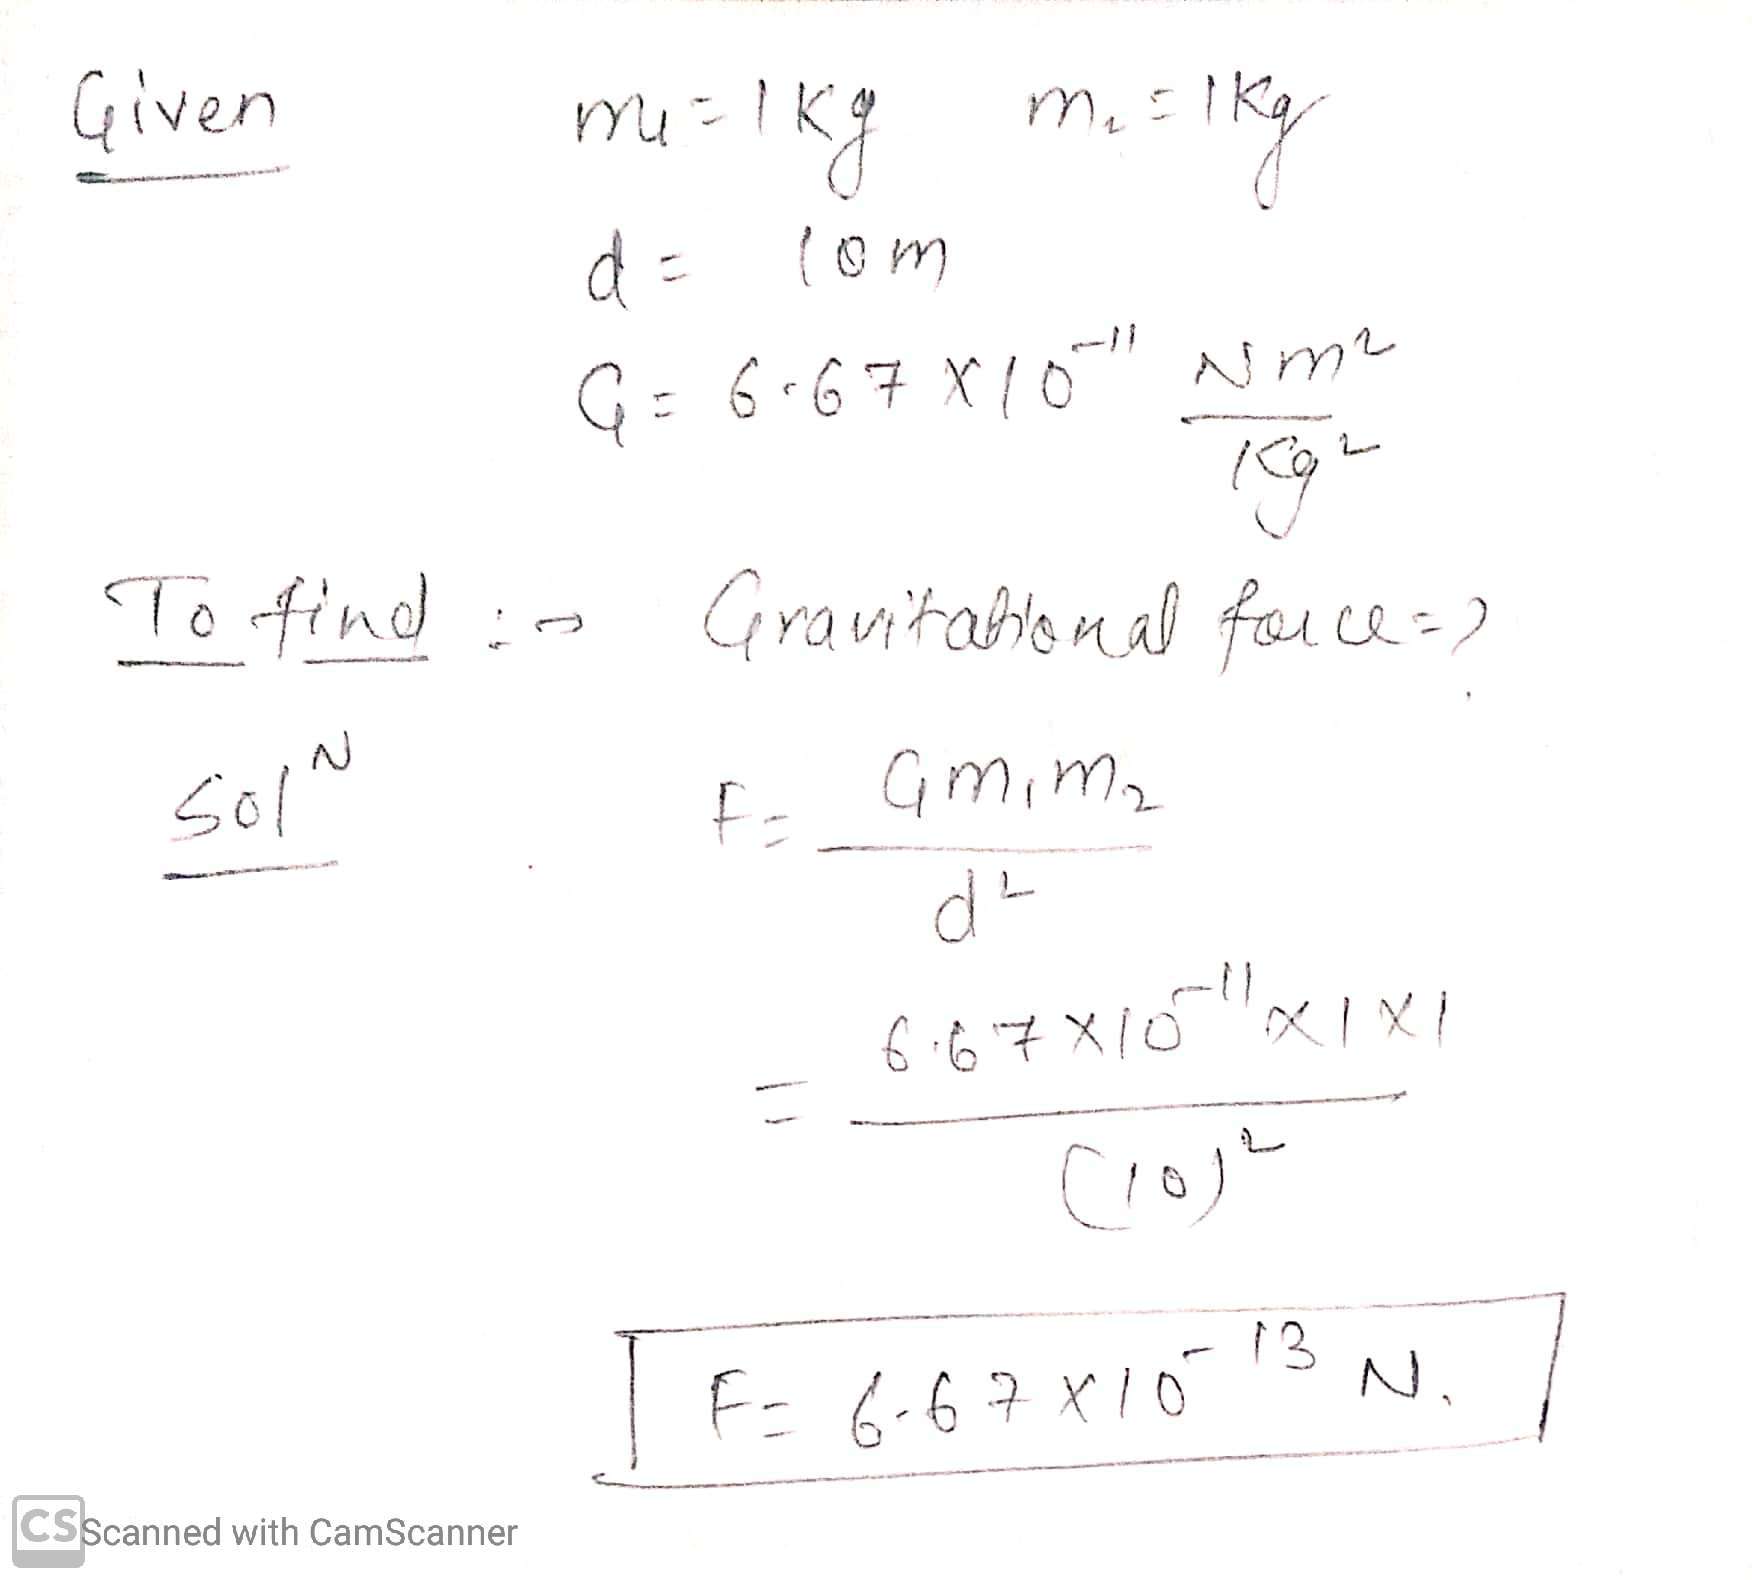 Given m₁ = 1 Kg m₂ = 1 Kg
d = 10 m
G = 6.67 × 10⁻¹¹ Nm²
Kg²
To find :→ Gravitational force = ?
Solᴺ F = Gm₁m₂
d²
= 6.67 × 10⁻¹¹ × 1 × 1
(10)²
F = 6.67 × 10⁻¹³ N.
CS Scanned with CamScanner